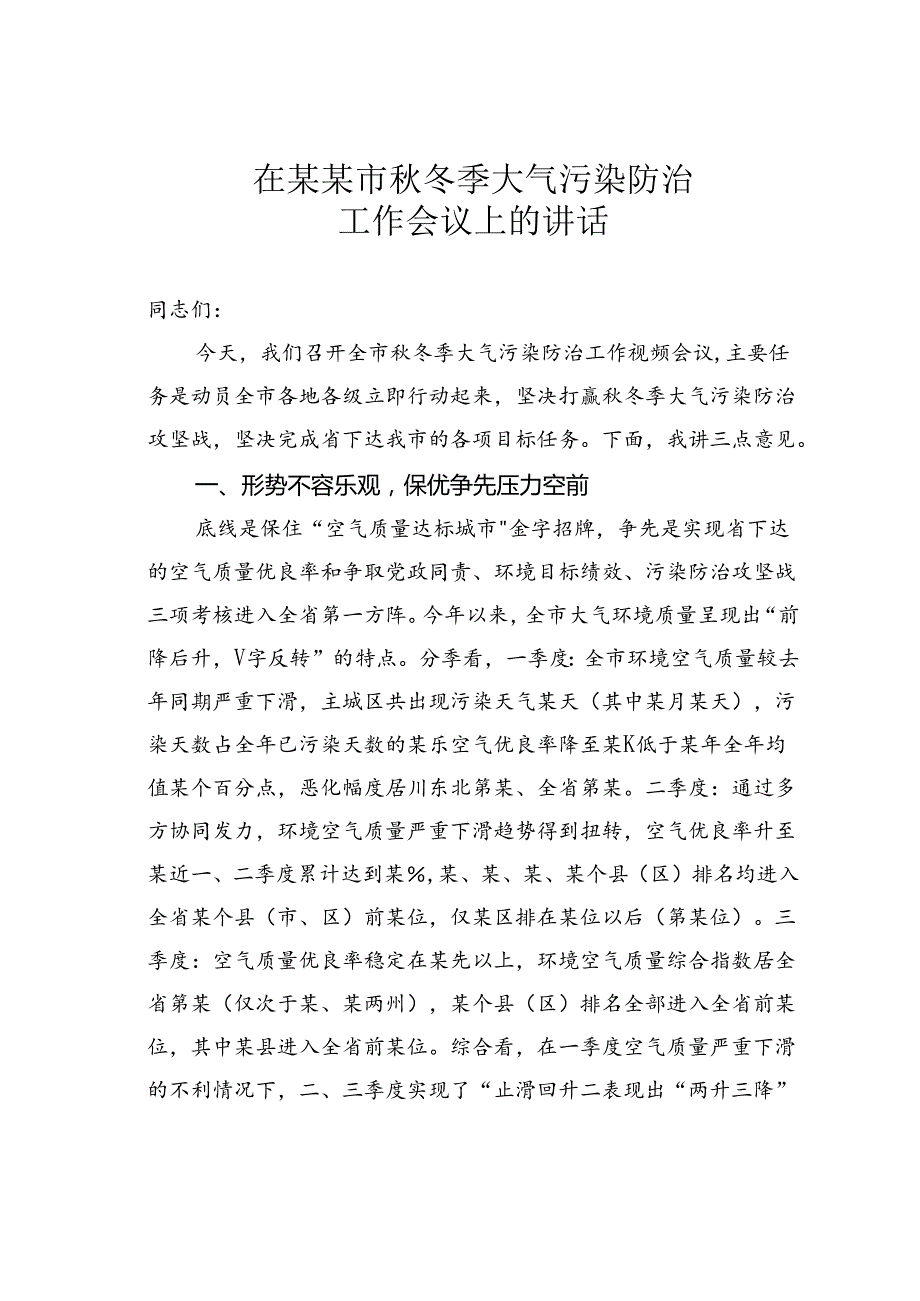 在某某市秋冬季大气污染防治
工作会议上的讲话
同志们：
今天，我们召开全市秋冬季大气污染防治工作视频会议,主要任
务是动员全市各地各级立即行动起来，坚决打赢秋冬季大气污染防治
攻坚战，坚决完成省下达我市的各项目标任务。下面，我讲三点意见。
一、形势不容乐观，保优争先压力空前
底线是保住“空气质量达标城市"金字招牌，争先是实现省下达
的空气质量优良率和争取党政同责、环境目标绩效、污染防治攻坚战
三项考核进入全省第一方阵。今年以来，全市大气环境质量呈现出“前
降后升，V字反转”的特点。分季看，一季度：全市环境空气质量较去
年同期严重下滑，主城区共出现污染天气某天（其中某月某天），污
染天数占全年已污染天数的某乐空气优良率降至某K低于某年全年均
值某个百分点，恶化幅度居川东北第某、全省第某。二季度：通过多
方协同发力，环境空气质量严重下滑趋势得到扭转，空气优良率升至
某近一、二季度累计达到某%,某、某、某、某个县（区）排名均进入
全省某个县（市、区）前某位，仅某区排在某位以后（第某位）。三
季度：空气质量优良率稳定在某先以上，环境空气质量综合指数居全
省第某（仅次于某、某两州），某个县（区）排名全部进入全省前某
位，其中某县进入全省前某位。综合看，在一季度空气质量严重下滑
的不利情况下，二、三季度实现了“止滑回升二表现出“两升三降”